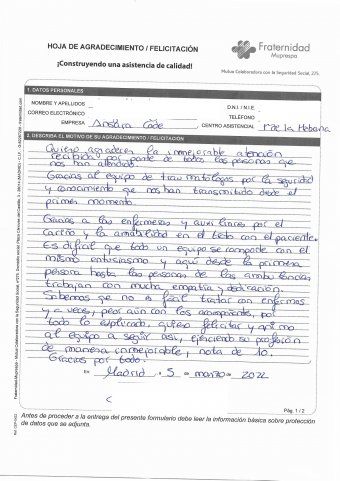 HOJA DE AGRADECIMIENTO / FELICITACIÓN
¡Construyendo una asistencia de calidad!
Fraternidad
Muprespa
Mutua Colaboradora con la Seguridad Social, 275.
1. DATOS PERSONALES
NOMBRE Y APELLIDOS
D.N.I. / N.I.E.
CORREO ELECTRÓNICO
TELÉFONO
EMPRESA
CENTRO ASISTENCIAL Pº de la Habana
2. DESCRIBA EL MOTIVO DE SU AGRADECIMIENTO / FELICITACIÓN
Quiero agradecer la inmejorable atención
recibida por parte de todas las personas que
nos han atendido.
Gracias al equipo de traumatólogos por la seguridad
y conocimiento que nos han transmitido desde el
primer momento.
Gracias a las enfermeras y auxiliares por el
cariño y la amabilidad en el trato con el paciente.
Es dificil que todo un equipo se comporte con el
mismo entusiasmo y aquí desde la primera
persona hasta las personas de las ambulancias
trabajan con mucha empatía y dedicación.
Sabemos que no es fácil tratar con enfermos
y a veces, peor aún con los acompañantes, por
todo lo explicado, quiero felicitar y animo
al equipo a seguir así, ejerciendo su profesión
de manera inmejorable, nota de 10.
Gracias por todo.
En Madrid, 5 - marzo - 2022
Pág. 1 / 2
Antes de proceder a la entrega del presente formulario debe leer la información básica sobre protección
de datos que se adjunta.